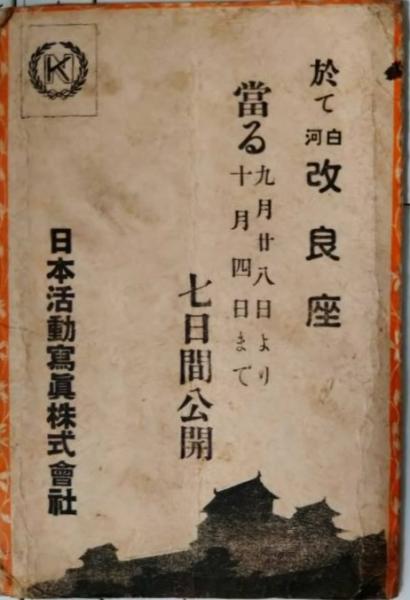 於て白河改良座
當る九月廿八日より
十月四日まで
七日間公開
日本活動寫眞株式會社
K